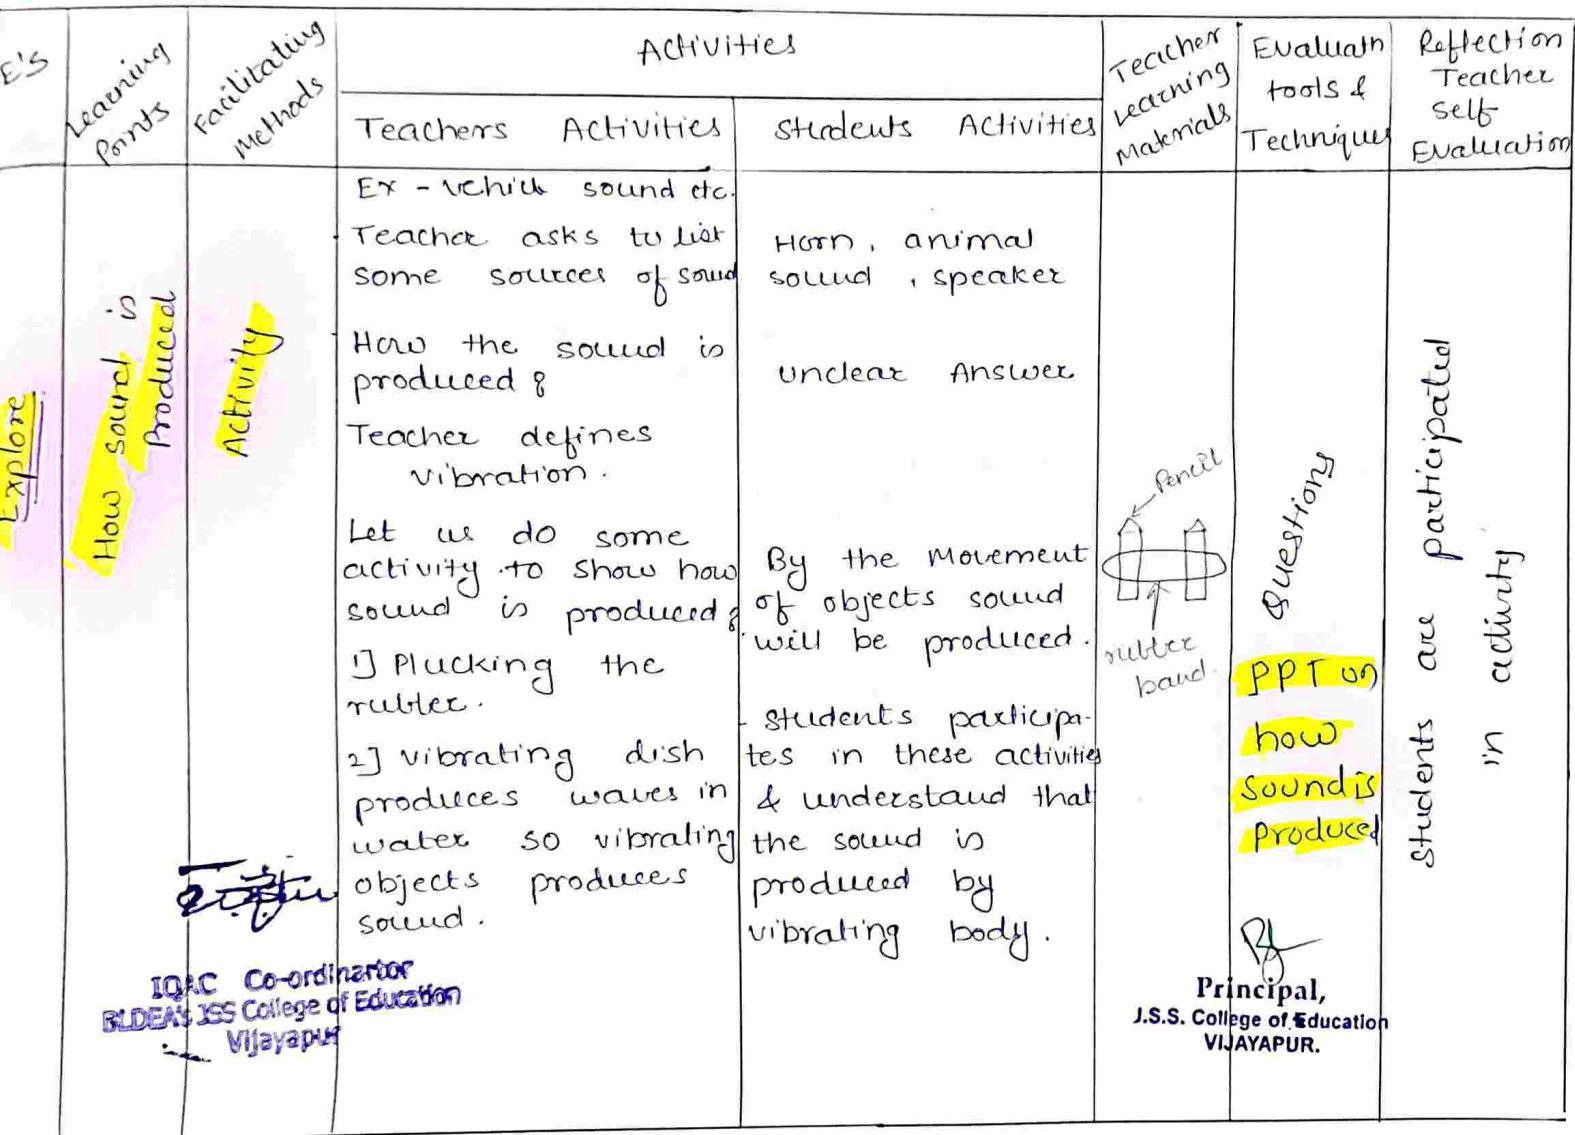 E's
Learning
Points
Facilitating
Methods
Activities
Teachers Activities
Students Activities
Teacher
Learning
Materials
Evaluatn
tools &
Techniques
Reflection
Teacher
Self
Evaluation
Explore
How sound is
Produced
Activity
Ex - vehicle sound etc.
Teacher asks to list
some sources of sound
How the sound is
produced ?
Teacher defines
vibration.
Let us do some
activity to show how
sound is produced ?
1] Plucking the
rubber.
2] vibrating dish
produces waves in
water so vibrating
objects produces
sound.
Horn, animal
sound, speaker
unclear Answer
By the Movement
of objects sound
will be produced.
- Students participa-
tes in these activities
& understand that
the sound is
produced by
vibrating body.
Pencil
rubber
band.
Questions
PPT on
how
sound is
produced
Students are participated
in activity
IQAC Co-ordinartor
BLDEA's JSS College of Education
Vijayapur
Principal,
J.S.S. College of Education
VIJAYAPUR.